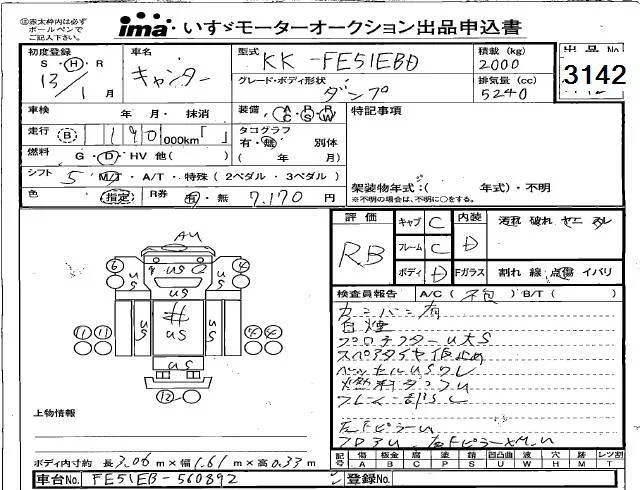 ①赤太枠内は必ず
ボールペンで
ご記入下さい。
ima いすゞモーターオークション出品申込書
初度登録 S・H・R 13/1月
車名 キャンター
型式 KK-FE51EBD
グレード・ボディ形状 ダンプ
積載(kg) 2000
排気量(cc) 5240
出品No
3142
車検 年 月・抹消
装備 A/C P/S R/W
特記事項
走行 B 190 000km「 」
タコグラフ 有・無 別体
( 年 月)
燃料 G・D・HV 他( )
シフト 5 M/T・A/T・特殊(2ペダル・3ペダル)
色 指定 R券 有・無 7,170円
架装物年式:( 年式)・不明
※不明の場合は、不明に○をする。
評価 RB
キャブ C 内装 D 汚れ 破れ ヤニ スレ
フレーム C
ボディ D Fガラス 割れ 線 点傷 イバリ
検査員報告 A/C(不包)B/T( )
カンバン有
白煙
プロテクターU大S
スペアタイヤ仮止め
ベッセルUSワレ
燃料タンクU
左Fピラーu
AU
US
6 4
US
US US
# US
11 11 4 4
US
12
上物情報
ボディ内寸約 長3.06m×幅1.61m×高0.33m
記号 傷 板金 腐 塗 錆 凹凸曲 波 穴 跡 レツ割
A B C P S U W H M T
車台No. FE51EB-560892
登録No.